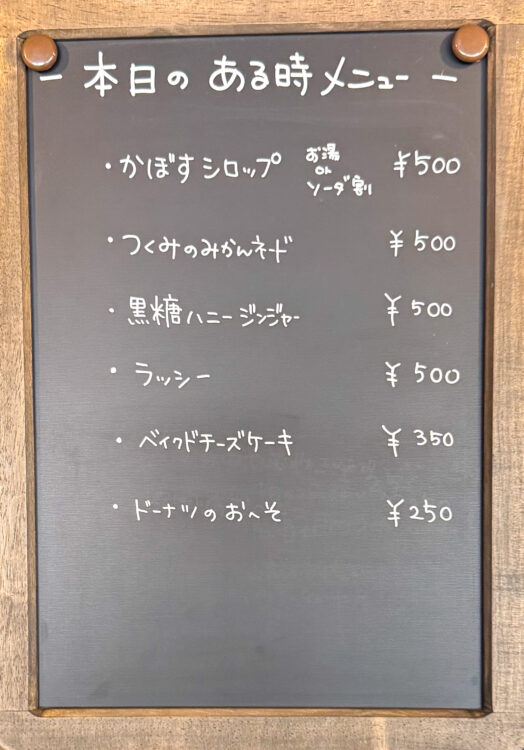 ― 本日の ある時メニュー ―
・かぼすシロップ お湯 or ソーダ割 ¥500
・つくみのみかんネード ¥500
・黒糖ハニージンジャー ¥500
・ラッシー ¥500
・ベイクドチーズケーキ ¥350
・ドーナツのおへそ ¥250